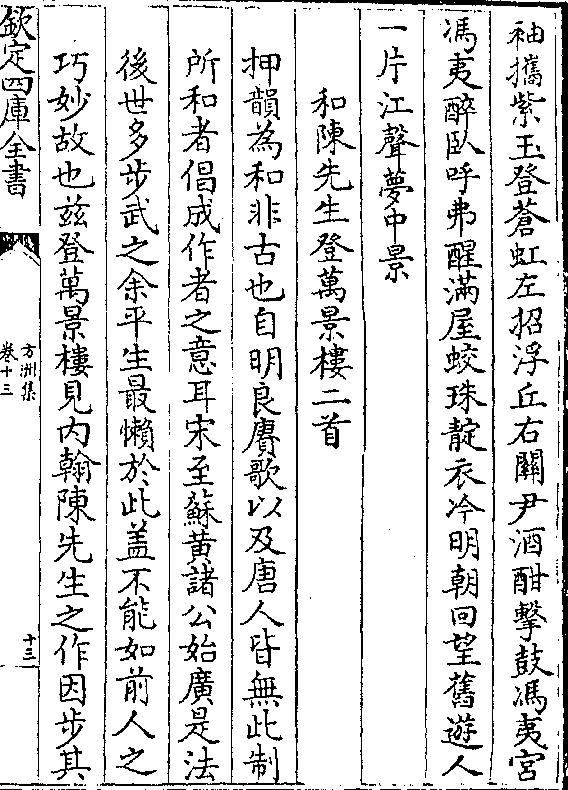 袖攜紫玉登蒼虹左招浮丘右關尹酒酣擊鼓馮夷宮
馮夷醉臥呼弗醒滿屋蛟珠靛衣冷明朝回望舊遊人
一片江聲夢中景
和陳先生登萬景樓二首
押韻為和非古也自明良賡歌以及唐人皆無此制
所和者倡成作者之意耳宋至蘇黃諸公始廣是法
後世多步武之余平生最懶於此盖不能如前人之
巧妙故也兹登萬景樓見内翰陳先生之作因步其
欽定四庫全書
方洲集
卷十三
十三